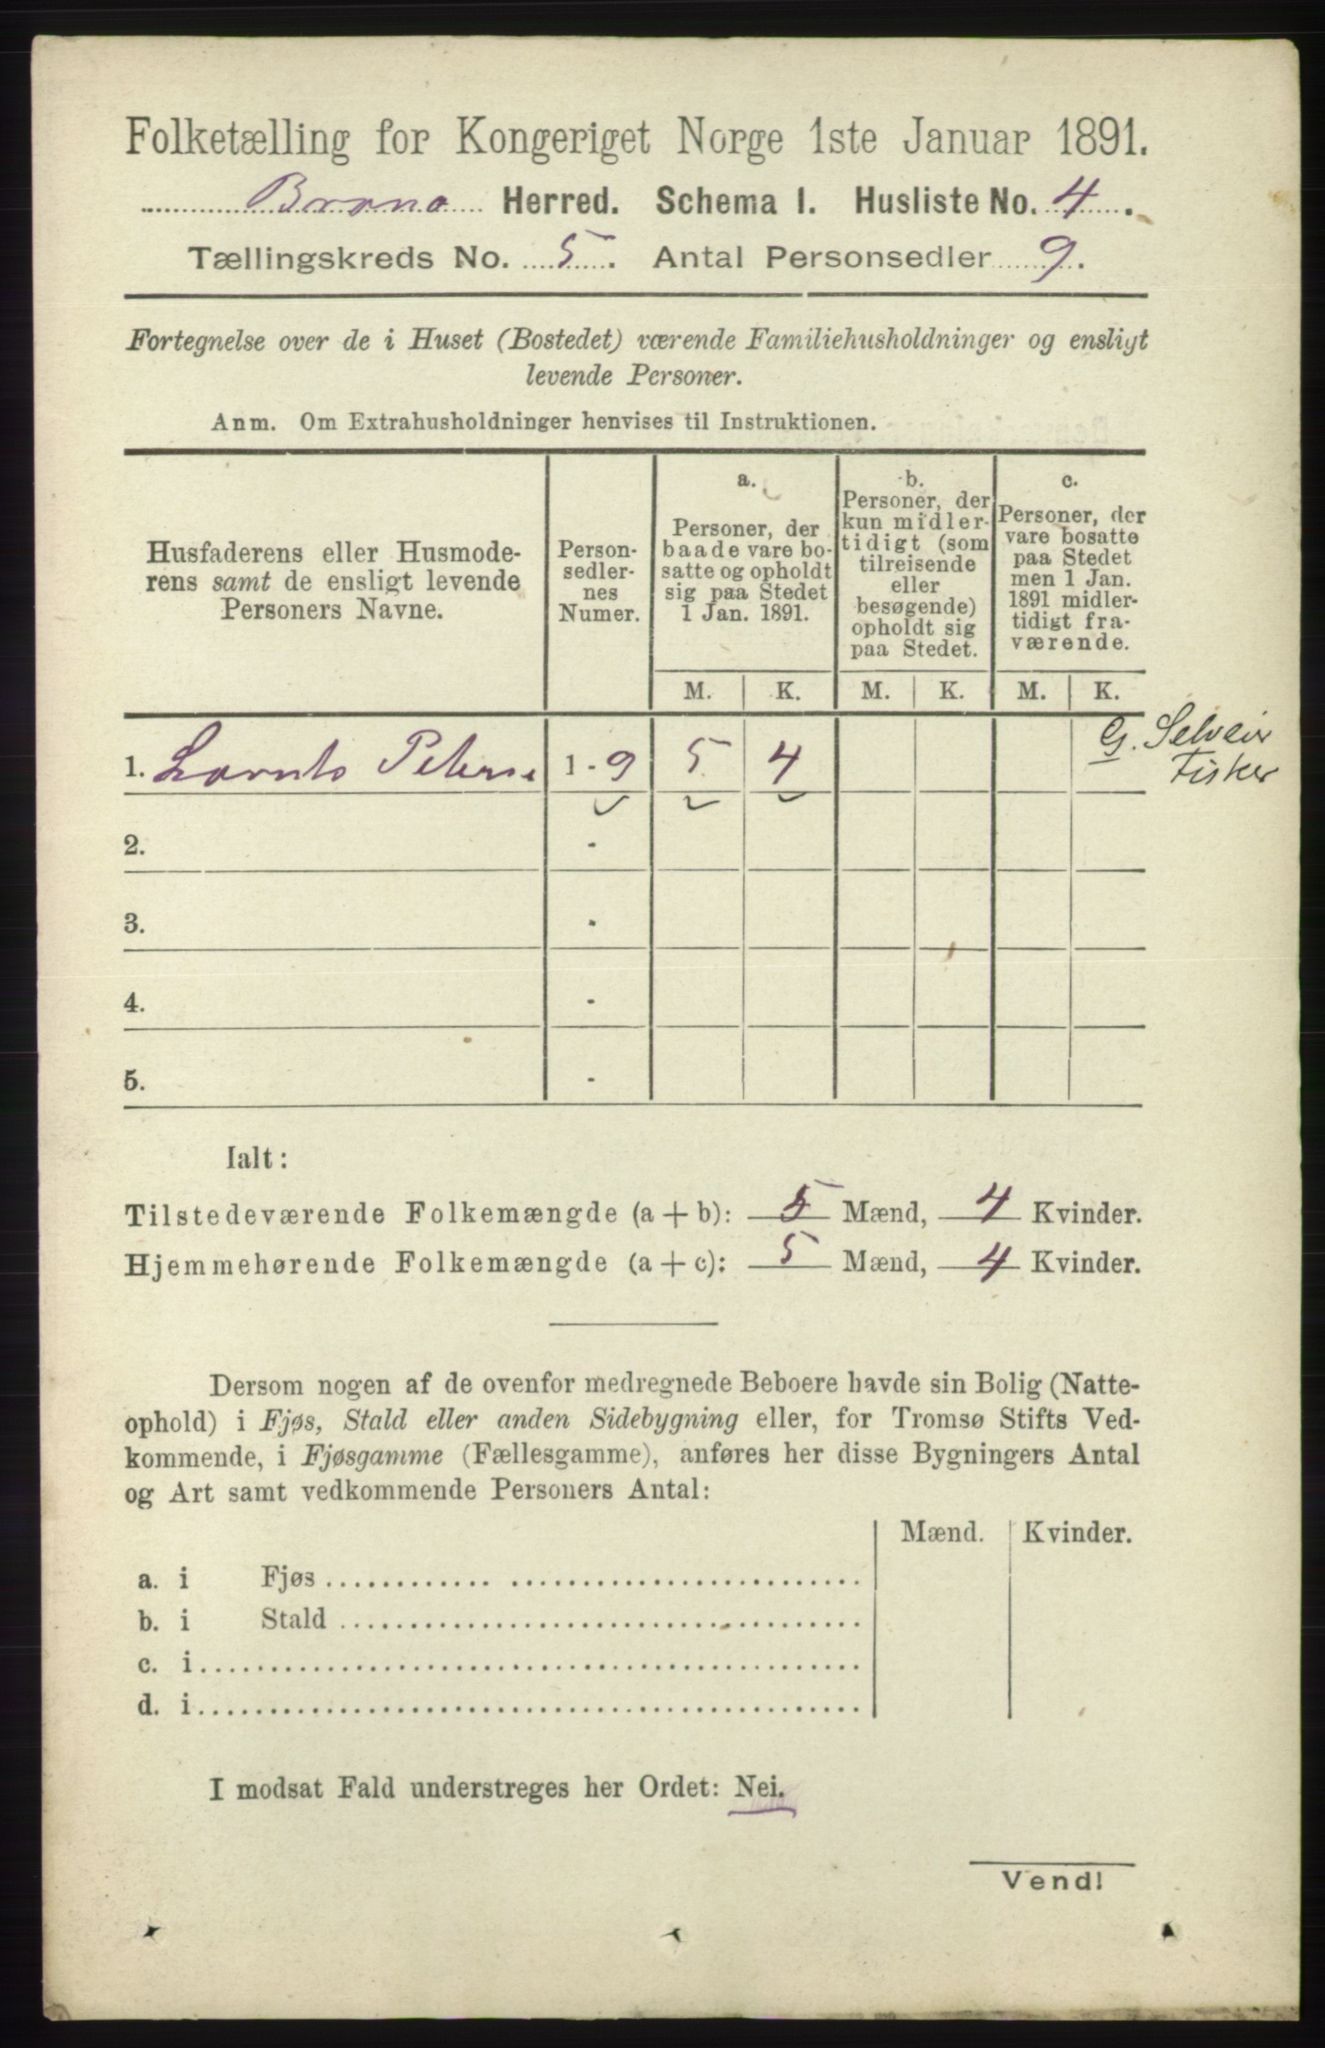 Folketælling for Kongeriget Norge 1ste Januar 1891.
Brønø Herred. Schema I. Husliste No. 4.
Tællingskreds No. 5. Antal Personsedler 9.
Fortegnelse over de i Huset (Bostedet) værende Familiehusholdninger og ensligt
levende Personer.
Anm. Om Extrahusholdninger henvises til Instruktionen.
Husfaderens eller Husmode-
rens samt de ensligt levende
Personers Navne.
Person-
sedler-
nes
Numer.
a.
Personer, der
baade vare bo-
satte og opholdt
sig paa Stedet
1 Jan. 1891.
b.
Personer, der
kun midler-
tidigt (som
tilreisende
eller
besøgende)
opholdt sig
paa Stedet.
c.
Personer, der
vare bosatte
paa Stedet
men 1 Jan.
1891 midler-
tidigt fra-
værende.
M. K. M. K. M. K.
1. Peters. 1 - 9 5 4
G. Selveir
Fisker
2. -
3. -
4. -
5. -
Ialt:
Tilstedeværende Folkemængde (a + b): 5 Mænd, 4 Kvinder.
Hjemmehørende Folkemængde (a + c): 5 Mænd, 4 Kvinder.
Dersom nogen af de ovenfor medregnede Beboere havde sin Bolig (Natte-
ophold) i Fjøs, Stald eller anden Sidebygning eller, for Tromsø Stifts Ved-
kommende, i Fjøsgamme (Fællesgamme), anføres her disse Bygningers Antal
og Art samt vedkommende Personers Antal:
Mænd. Kvinder.
a. i Fjøs
b. i Stald
c. i
d. i
I modsat Fald understreges her Ordet: Nei.
Vend!